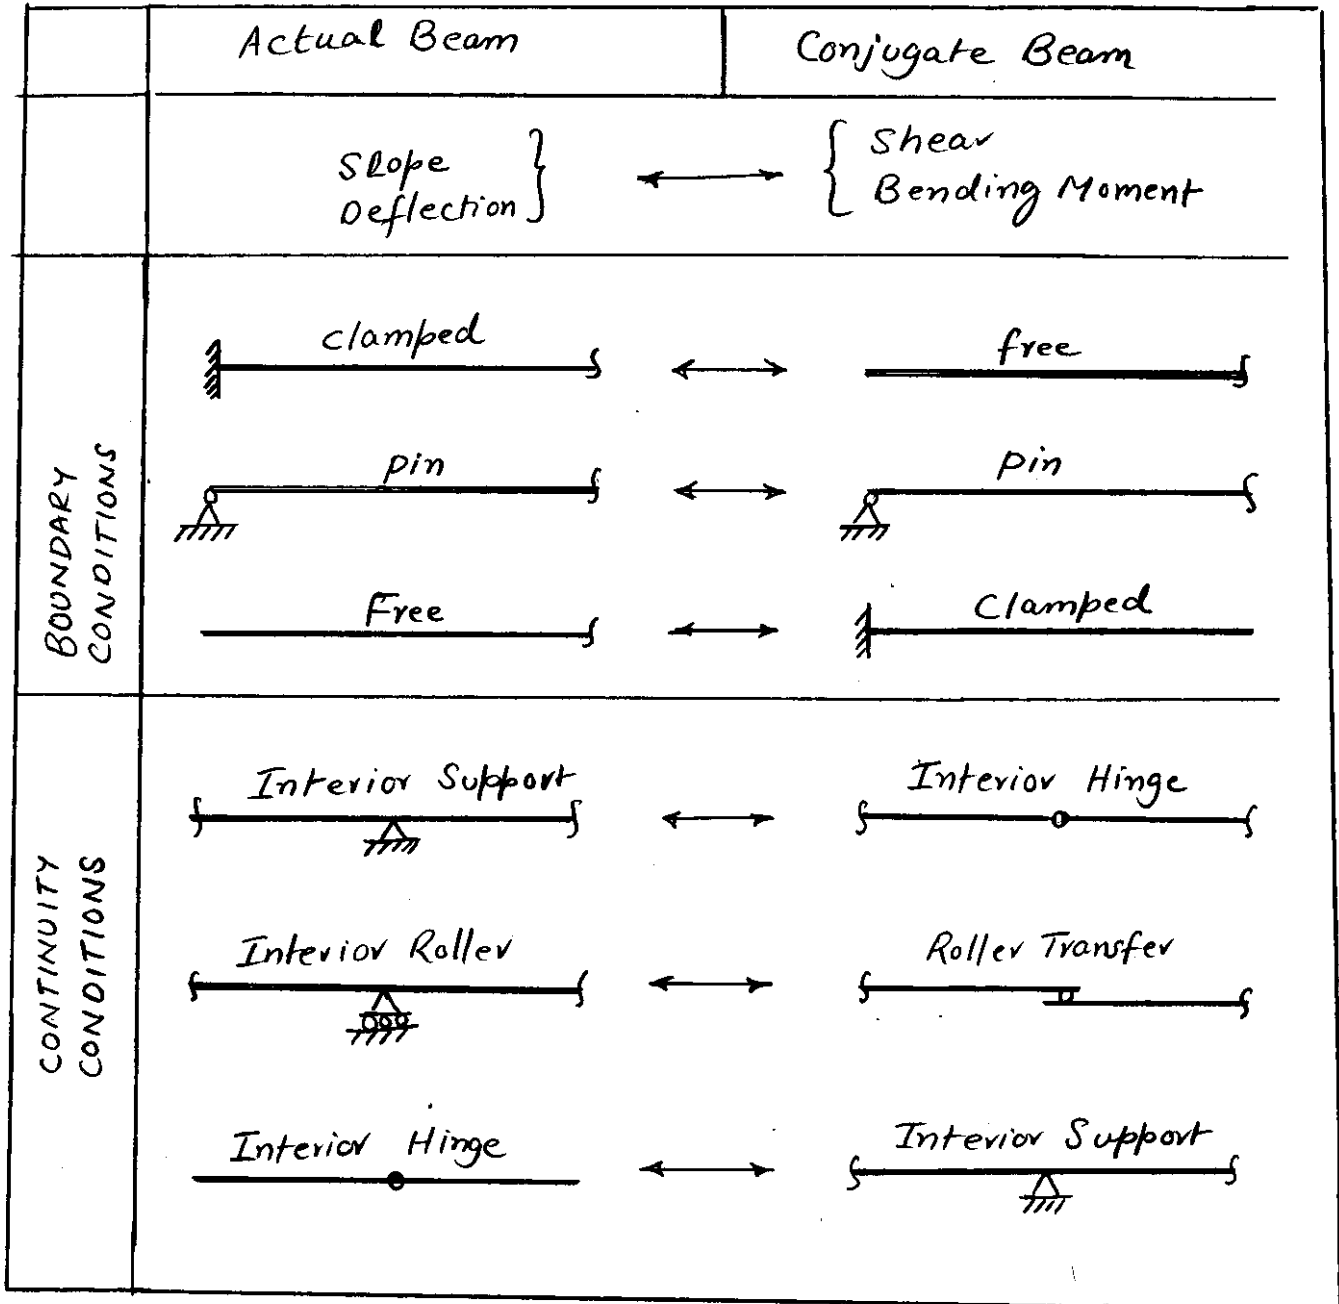 Actual Beam
Conjugate Beam
Slope
Deflection
Shear
Bending Moment
BOUNDARY
CONDITIONS
clamped
free
pin
pin
Free
Clamped
CONTINUITY
CONDITIONS
Interior Support
Interior Hinge
Interior Roller
Roller Transfer
Interior Hinge
Interior Support